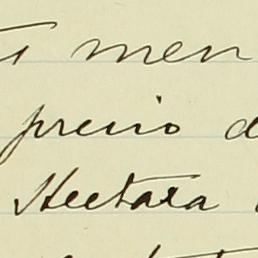 men
precio d
Hectara